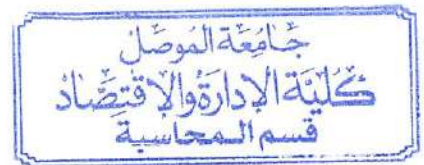 جَامِعَة المُوصَل
كُليَّة الإدارَة وَالإقتِصَاد
قسم المحاسبة